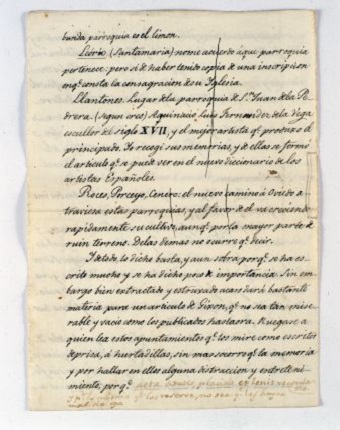 bunda parroquia es el limon.
Leorio. (Santamaria) no me acuerdo á que parroquia
pertenece. pero sí de haber tenido copia de una inscripcion
en q.e consta la consagracion de su Iglesia.
Llantones. Lugar de la parroquia de S.n Juan de la Pe-
drera. (Segun creo) Aqui nacio Luis Fernandez de la Vega
escultor del siglo XVII, y el mejor artista q.e produxo el
principado. Yo recogi sus memorias, y de ellas se formó
el articulo q.e se puede ver en el nuevo diccionario de los
artistas Españoles.
Roces, Porceyo, Cenero: el nuevo camino á Oviedo a-
traviesa estas parroquias, y al favor de él va creciendo
rapidamente su cultivo, aunq.e por la mayor parte de
ruin terreno. De las demas no ocurre q.e decir.
Todo lo dicho basta, y aun sobra porq.e se ha es-
crito mucho y se ha dicho poco de importancia. Sin em-
bargo bien extractado y estruxado acaso dará bastante
materia para un articulo de Gixon, q.e no sea tan mise-
rable y vacio como los publicados hasta ora. Ruegase a
quien lea estos apuntamientos q.e los mire como escritos
de prisa, á hurtadillas, sin mas socorro q.e la memoria
y por hallar en ellos alguna distraccion y entreteni-
miento, porq.e